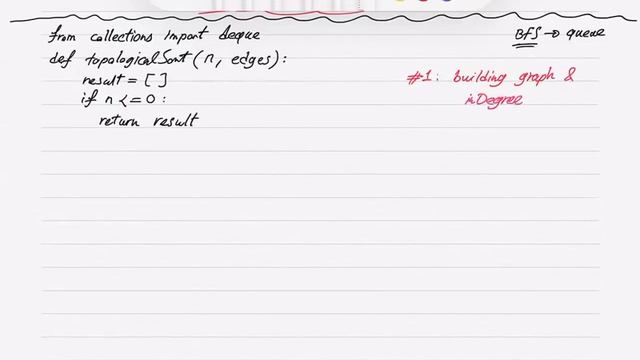 from collections import deque
BFS → queue
def topologicalSort(n, edges):
result = []
#1: building graph &
inDegree
if n <= 0:
return result